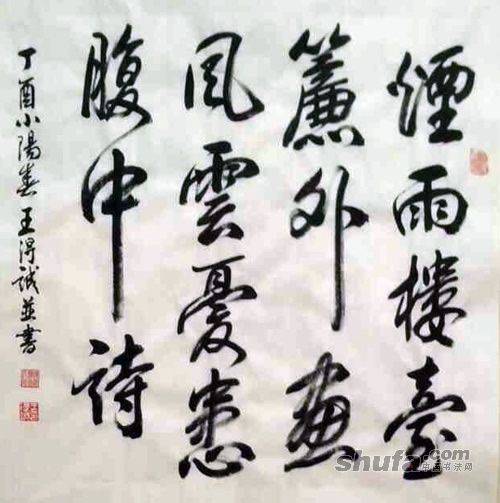 煙雨樓臺
簾外畫
風雲憂患
腹中詩
丁酉小陽春 王得誠並書
中国书法网